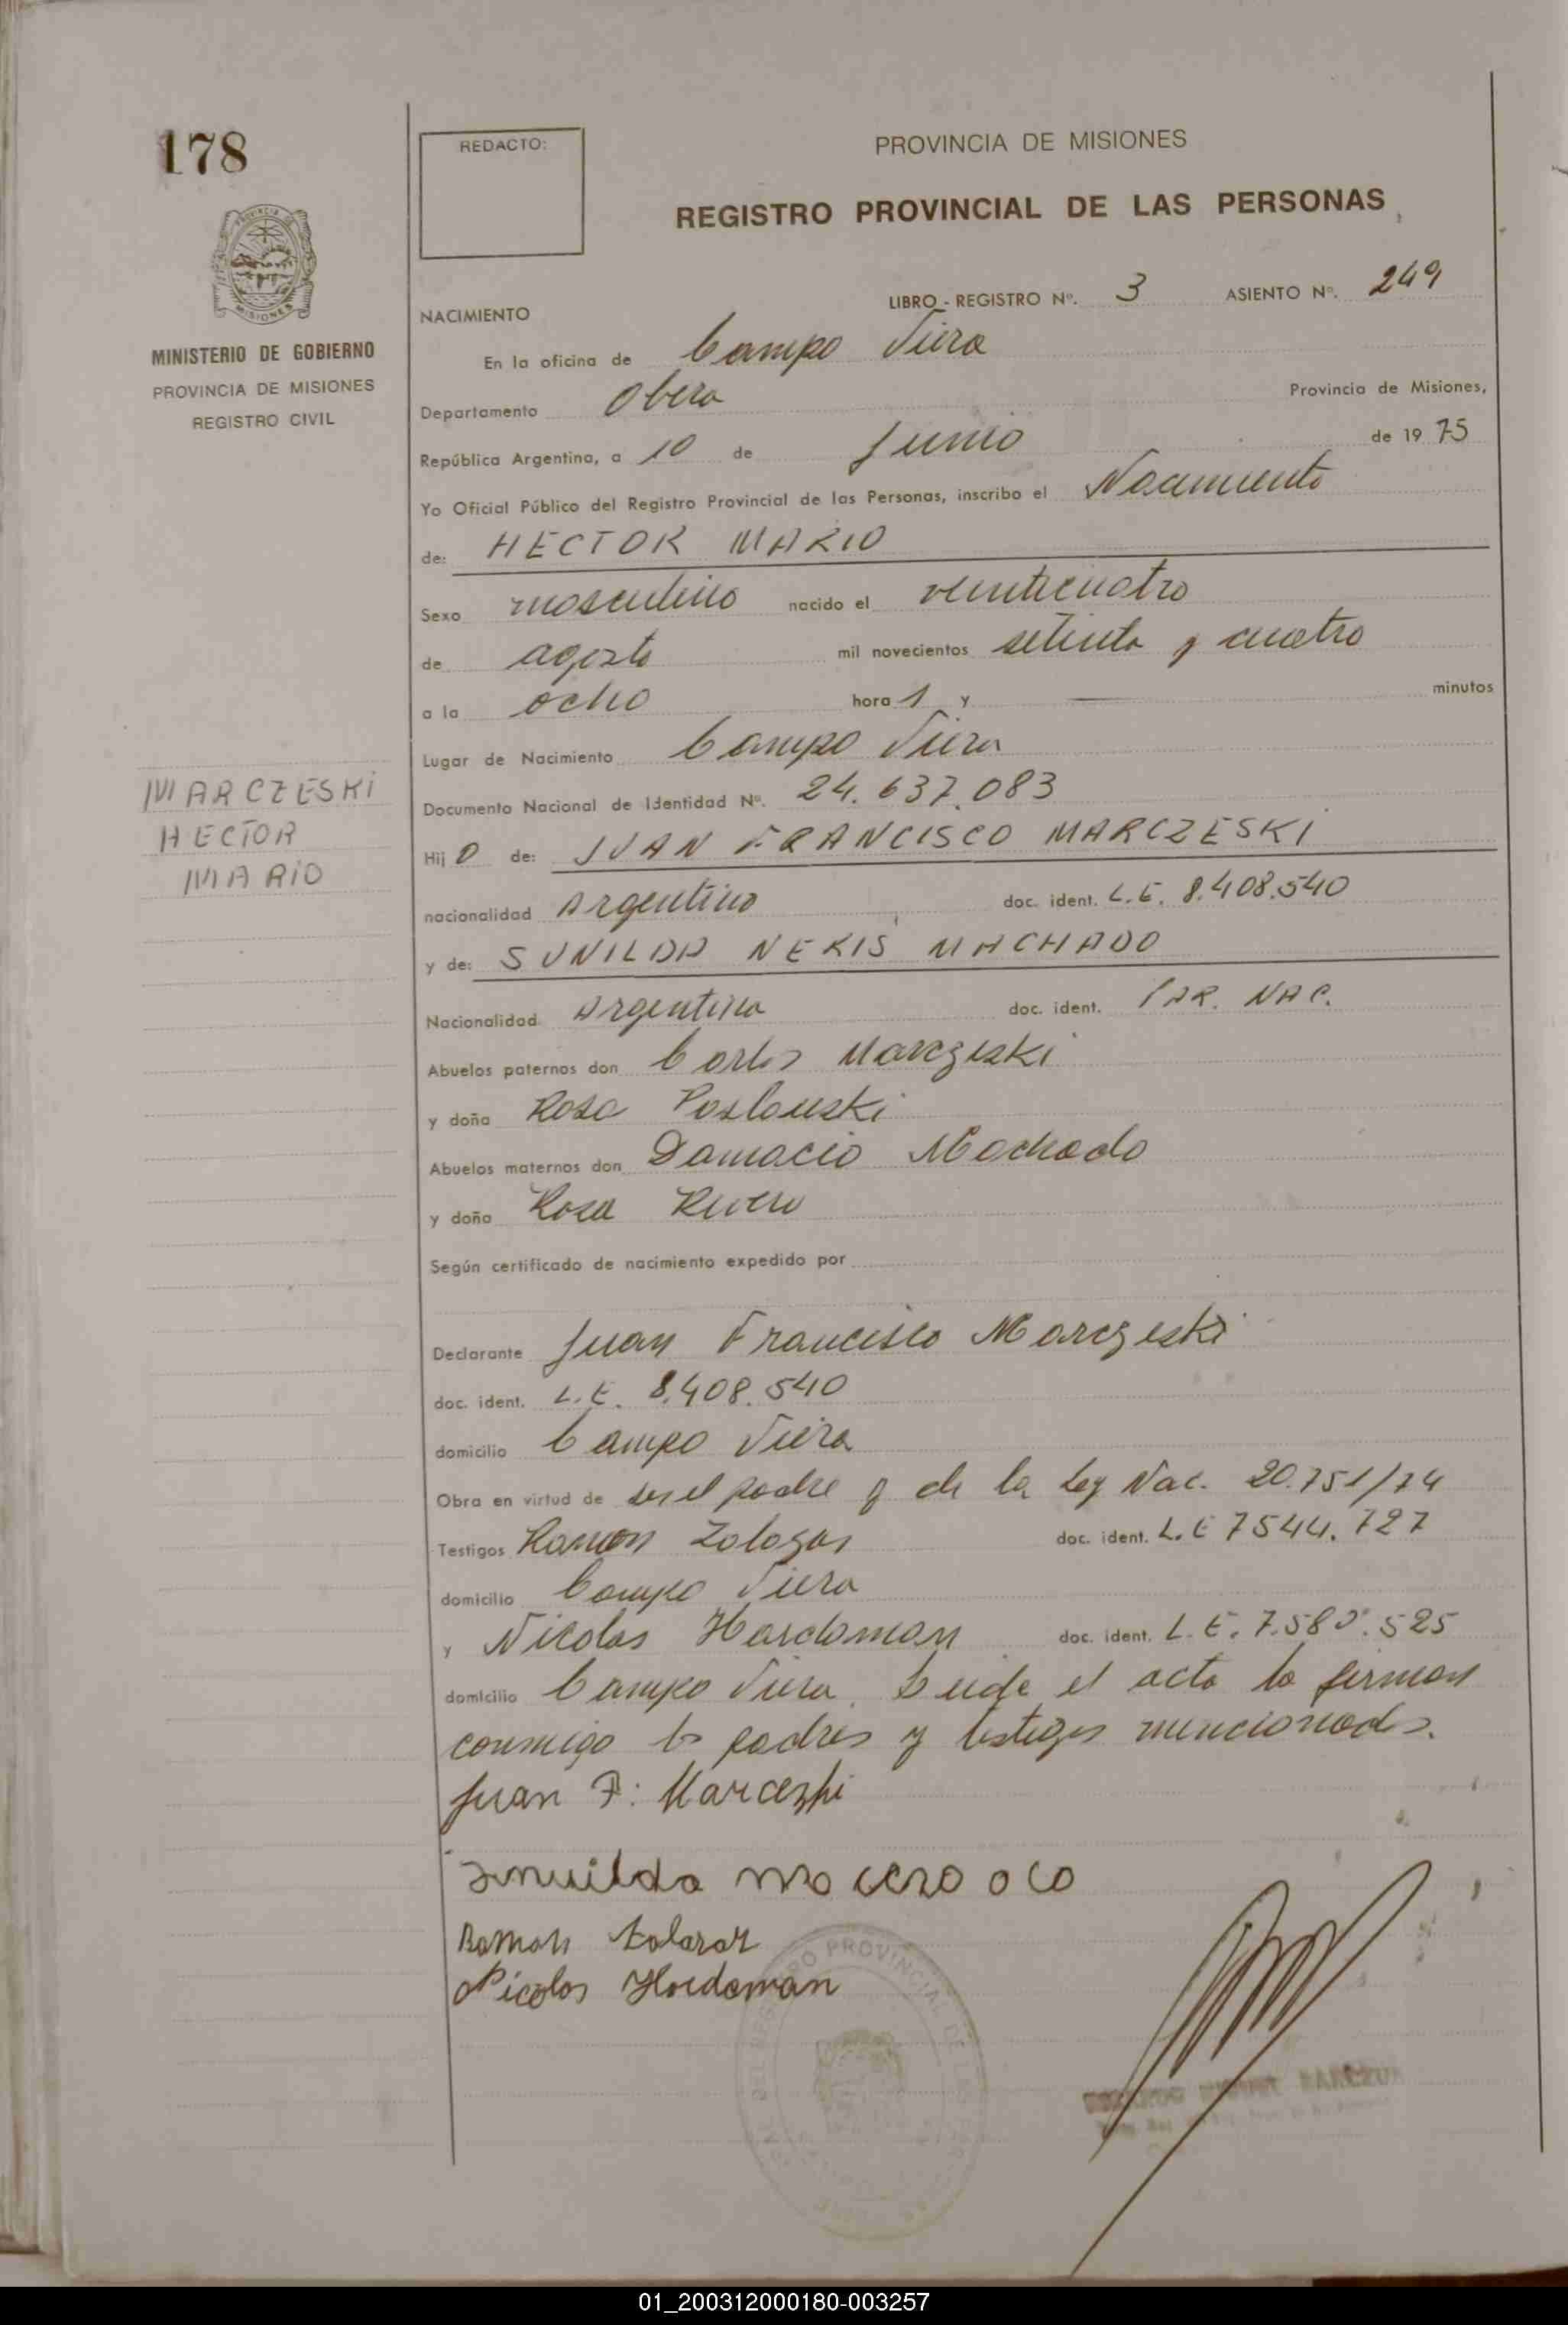 178
REDACTO:
PROVINCIA DE MISIONES
REGISTRO PROVINCIAL DE LAS PERSONAS
PROVINCIA DE
MISIONES
MINISTERIO DE GOBIERNO
PROVINCIA DE MISIONES
REGISTRO CIVIL
LIBRO - REGISTRO Nº. 3 ASIENTO Nº. 249
NACIMIENTO
En la oficina de Campo Viera
Departamento Obera Provincia de Misiones,
República Argentina, a 10 de Junio de 1975
Yo Oficial Público del Registro Provincial de las Personas, inscribo el Nacimiento
de: HECTOR MARIO
Sexo masculino nacido el veinticuatro
de agosto mil novecientos setenta y cuatro
a la ocho hora 1 y — minutos
Lugar de Nacimiento Campo Viera
Documento Nacional de Identidad Nº. 24.637.083
MARCZESKI
HECTOR
MARIO
Hij o de: JUAN FRANCISCO MARCZESKI
nacionalidad Argentino doc. ident. L.E. 8.408.540
y de: SUNILDA NERIS MACHADO
Nacionalidad Argentina doc. ident. PAR. NAC.
Abuelos paternos don Carlos Marczeski
y doña Rosa Poslouski
Abuelos maternos don Damacio Machado
y doña Rosa Rivero
Según certificado de nacimiento expedido por
Declarante Juan Francisco Marczeski
doc. ident. L.E. 8.408.540
domicilio Campo Viera
Obra en virtud de ser el padre y de la Ley Nac. 20.751/74
Testigos Ramon Zalazar doc. ident. L.E 7544.727
domicilio Campo Viera
y Nicolas Hardaman doc. ident. L.E. 7.580.525
domicilio Campo Viera. Leida el acta la firman
conmigo los padres y testigos mencionados.
Juan F. Marceski
Ramon Zalazar
Nicolas Hordeman
REGISTRO PROVINCIAL DE LAS
01_200312000180-003257